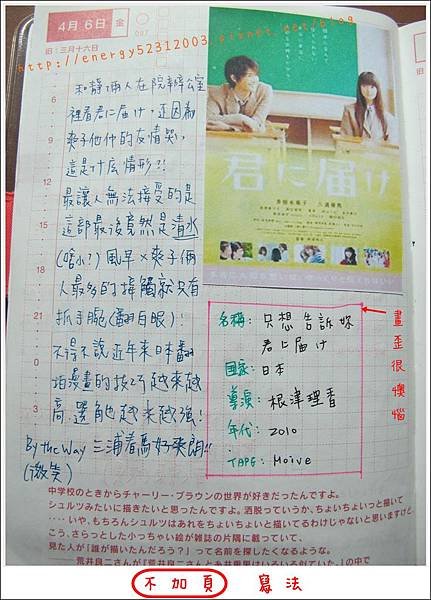 4月 6日 金
097
旧:三月十六日
http://energy52312003.pixnet.net/blog
和靜,兩人在院辦公室
裡看君に届け,正因為
爽子他仲的友情哭,
這是什底情形?!
最讓人無法接受的是
這部最後竟然是清水
(啥小?) 風早×爽子倆
人最多的接觸就只有
抓手腕(翻白眼)!
不得不說近年来日本翻
拍漫畫的技巧越来越
高,選角也越来越強!
By the Way 三浦春馬好爽朗!!
(微笑)
君に届け
名稱:只想告訴妳
君に届け
国家:日本
導演:根津理香
年代:2010
TAPE:Moive
畫歪很懊惱
中学校のときからチャーリー・ブラウンの世界が好きだったんですよ。
シュルツみたいに描きたいと思ったんですよ。洒脱っていうか、ちょいちょいっと描いて
・・・・いや、もちろんシュルツはあれをちょいちょいと描いてるわけじゃないと思いますけど、
こう、さらっとした小っちゃい絵が雑誌の片隅に載っていて、
見た人が「誰が描いたんだろう?」って名前を探したくなるような。
——荒井良二さんが『荒井良二さんと糸井重里はいろいろ似ていた。』の中で
不加頁 寫法